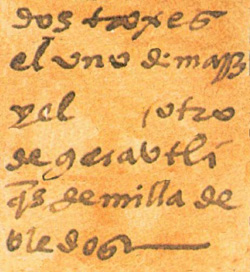 dos troxes
el uno de mayz
y el otro
de
q es semilla de
bledos